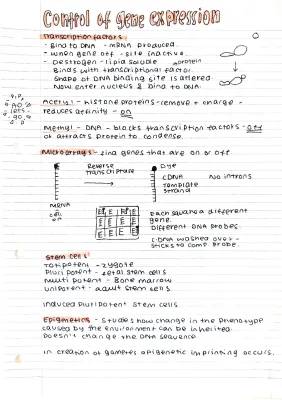 Control of gene expression
Transcription factors
• Bind to DNA - mRNA produced.
• When gene off - site inactive.
• Oestrogen - lipid soluble
protein
Binds with transcriptional factor.
Shape of DNA binding site is altered
Now enter nucleus & bind to DNA.
Acetyl - histone proteins - remove + charge -
reduces affinity - on
Methyl - DNA - blocks transcription factors - off
or attracts protein to condense.
Microarrays - find genes that are on or off.
Reverse
transcriptase
Dye
cDNA No introns
Template
strand
mRNA
cell
on
Each square a different
gene.
Different DNA probes.
cDNA washed over -
sticks to comp. probe.
Stem cells
Totipotent - zygote
Pluripotent - fetal stem cells
Multipotent - Bone marrow
Unipotent - adult stem cells
Induced pluripotent stem cells
Epigenetics - studies how change in the phenotype
caused by the environment can be inherited
Doesn't change the DNA sequence.
In creation of gametes epigenetic imprinting occurs.